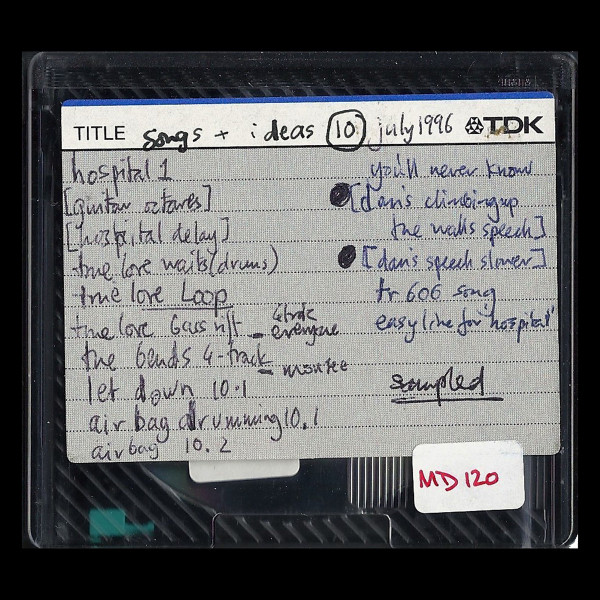 TITLE songs + ideas 10 july 1996 TDK
hospital 1
[guitar octaves]
[hospital delay]
true love waits (drums)
true love Loop
true love bass riff - 4 trk everyone
the bends 4-track -
let down 10.1
airbag drumming 10.1
airbag 10.2
you'll never know
[dan's climbing up
the walls speech]
[dan's speech slower]
tr 606 song
easy line for 'hospital'
sampled
MD 120